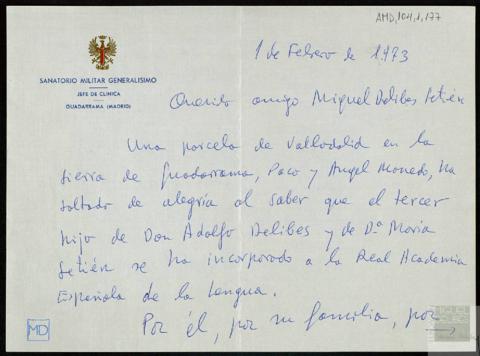 AMD, 104, 1, 177
1 de Febrero de 1.973
SANATORIO MILITAR GENERALISIMO
JEFE DE CLINICA
GUADARRAMA (MADRID)
Querido amigo Miguel Delibes Setién
Una parcela de Valladolid en la
Sierra de Guadarrama, Paco y Angel Monedo, ha
saltado de alegría al saber que el tercer
hijo de Don Adolfo Delibes y de Dª Maria
Setién se ha incorporado a la Real Academia
Española de la Lengua.
Por él, por su familia, por
MD